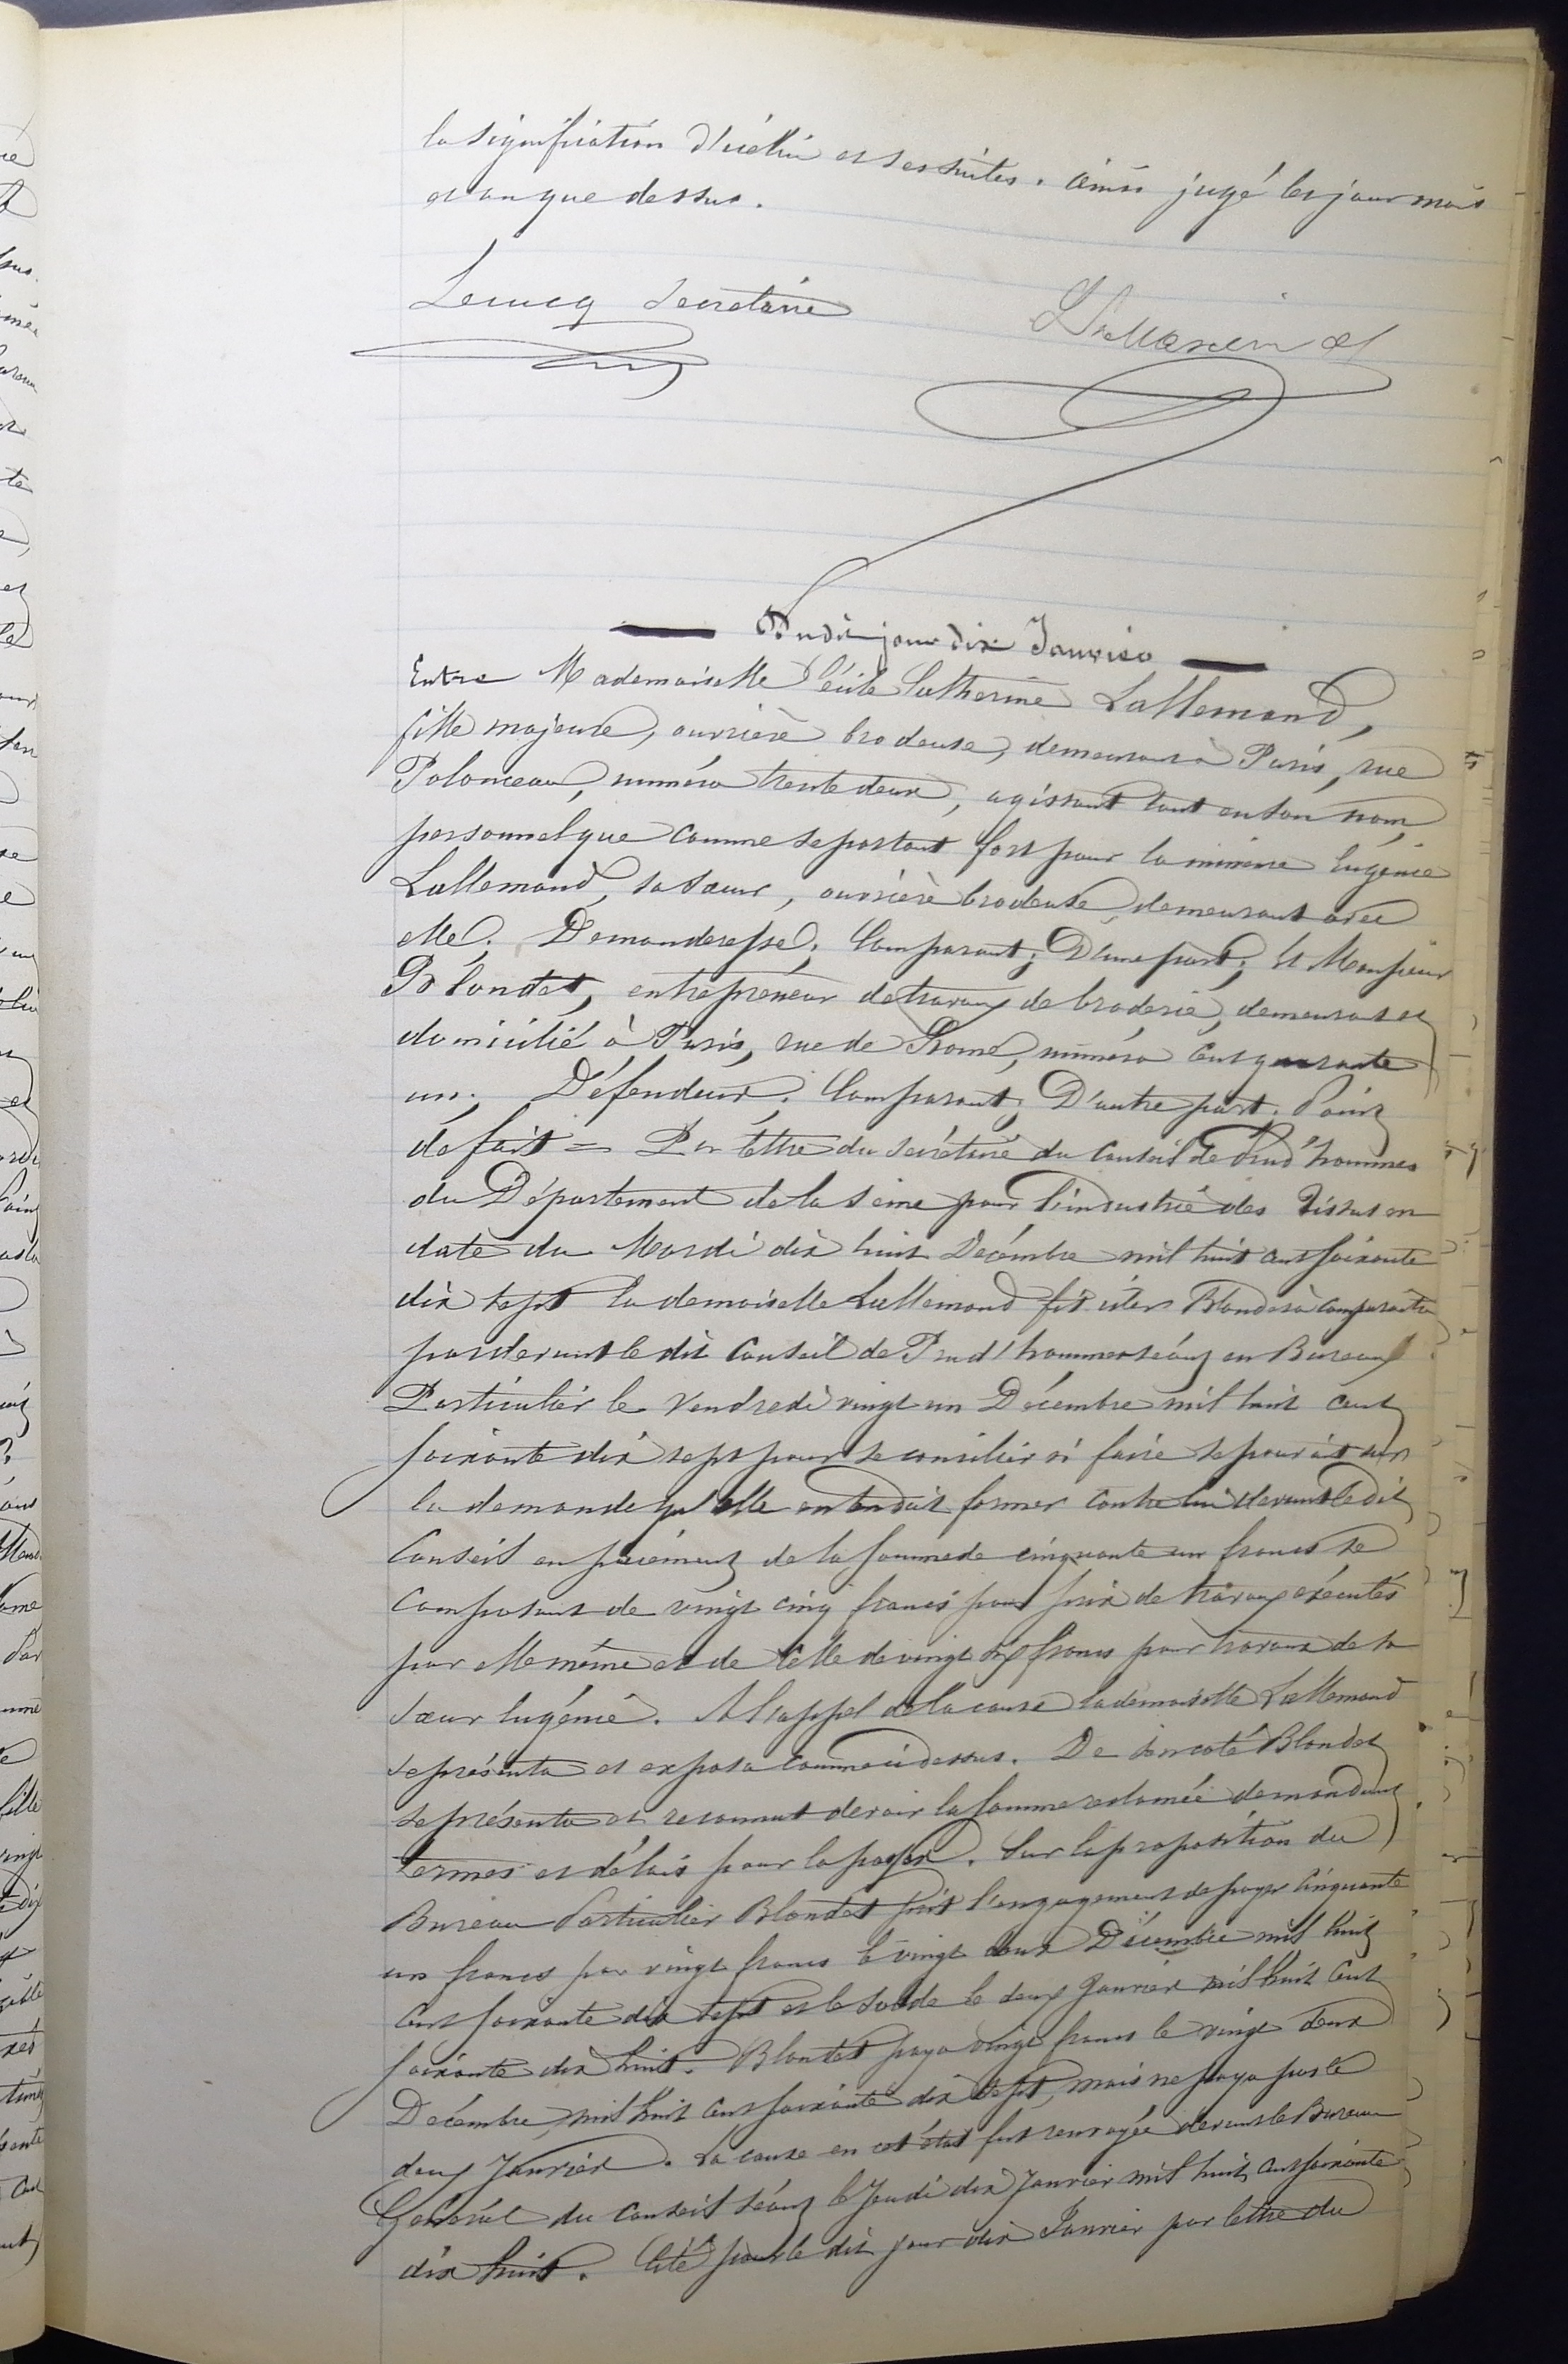 la signification d'icelui et ses suites. ainsi jugé les jour mois
et an que dessus.
Lecucq Secrétaire
Dudit jour dix Janvier
Entre Mademoiselle Cécile Catherine Lallemand,
fille majeure, ouvrière brodeuse, demeurant à Paris, rue
Polonceau, numéro trente deux, agissant tant en son nom
personnel que comme se portant fort pour la mineure Eugénie
Lallemand, sa sœur, ouvrière brodeuse demeurant avec
elle. Demanderesse; Comparant; D'une part; Et Monsieur
Blondet, entrepreneur de travaux de broderie, demeurant et
domicilié à Paris, rue de Rome, numéro cent quarante
un. Défendeur; Comparant; D'autre part. Point
de fait = Par lettre du secrétaire du Conseil de Prud'hommes
du Département de la Seine pour l'industrie des Tissus en
date du Mardi dix huit Décembre mil huit cent soixante
dix sept la demoiselle Lallemand fit citer Blondet à comparaître
pardevant le dit Conseil de Prud'hommes séant en Bureau
Particulier le Vendredi vingt un Décembre mil huit cent
soixante dix sept pour se concilier si faire se pouvait sur
la demande qu'elle entendait former contre lui devant le dit
Conseil en paiement de la somme de cinquante un francs se
composant de vingt cinq francs pour prix de travaux exécutés
par elle même et de celle de vingt six francs pour travaux de sa
sœur Eugénie. A l'appel de la cause la demoiselle Lallemand
se présenta et exposa comme ci dessus. De son coté Blondet
se présenta et reconnut devoir la somme réclamée demandant
termes et délais pour la payer. Sur la proposition du
Bureau Particulier Blondet prit l'engagement de payer cinquante
un francs par vingt francs le vingt deux Décembre mil huit
cent soixante dix sept et le solde le deux Janvier mil huit cent
soixante dix huit. Blondet paya vingt francs le vingt deux
Décembre mil huit cent soixante dix sept, mais ne paya pas le
deux Janvier. La cause en cet état fut renvoyée devant le Bureau
Général du Conseil séant le Jeudi dix Janvier mil huit cent soixante
dix huit. Cité pour le dit jour dix Janvier par lettre du